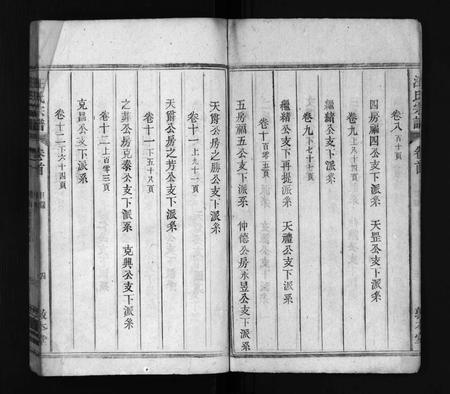 卷八 百十頁
四房福四公支下派系 天罡公支下派系
卷九上 八十四頁
繼緒公支下派系
卷九下 七十七頁
繼緒公支下再提派系 天禮公支下派系
卷十 百零五頁
五房福五公支下派系 仲德公房永昱公支下派系
卷十一上 九十二頁
天爵公房之勝公支下派系
卷十一下 五十八頁
天爵公房之芳公支下派系
卷十二上 百零三頁
之葬公房克泰公支下派系 克興公支下派系
卷十二下 六十四頁
克昌公支下派系
氏宗譜 卷首 四 敦本堂